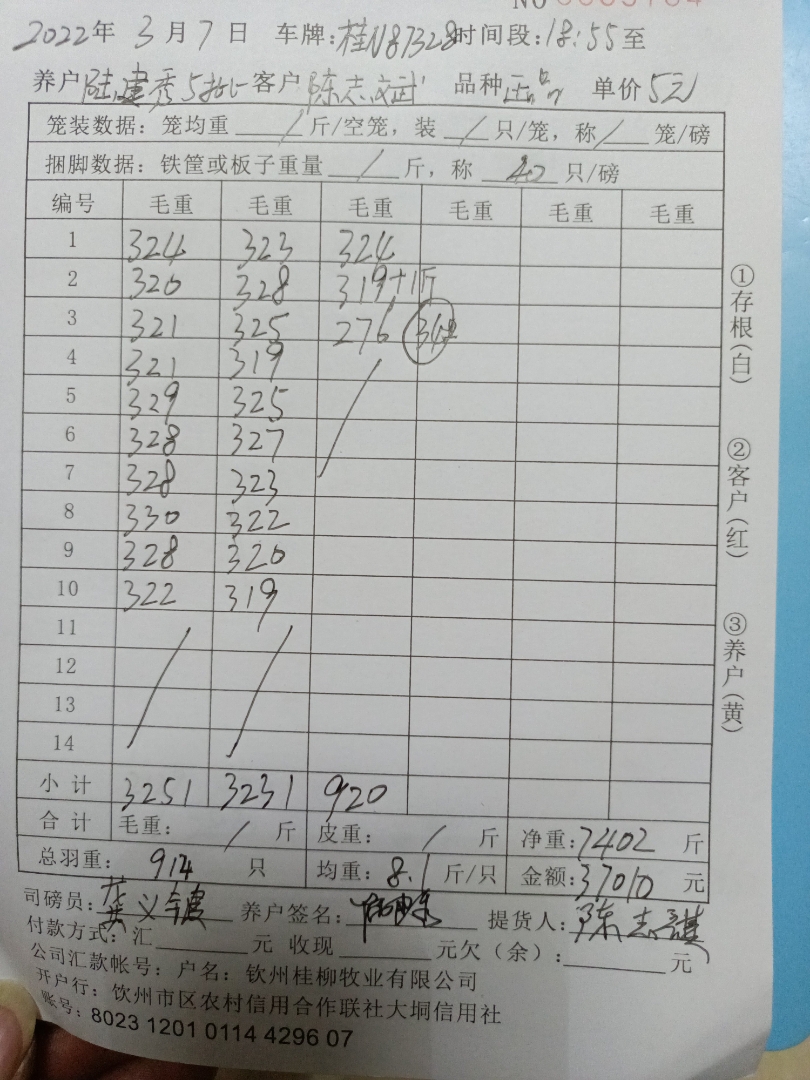 NO
2022年 3月7日 车牌:桂N87328 时间段:18:55至
养户 陆建秀 客户 陈志武 品种 正品 单价 5元
笼装数据:笼均重 / 斤/空笼,装 / 只/笼,称 / 笼/磅
捆脚数据:铁筐或板子重量 / 斤,称 40 只/磅
编号 毛重 毛重 毛重 毛重 毛重 毛重
1 324 323 324
2 320 328 319+1斤
3 321 325 276
4 321 319
5 329 325
6 328 327
7 328 323
8 330 322
9 328 320
10 322 319
11
12
13
14
小计 3251 3231 920
合计 毛重: / 斤 皮重: / 斤 净重:7402 斤
总羽重: 914 只 均重: 8.1 斤/只 金额:37010 元
司磅员: 养户签名: 提货人: 陈志
付款方式:汇 元 收现 元欠(余): 元
公司汇款帐号:户名:钦州桂柳牧业有限公司
开户行:钦州市区农村信用合作联社大垌信用社
账号:8023 1201 0114 4296 07
①存根(白)
②客户(红)
③养户(黄)